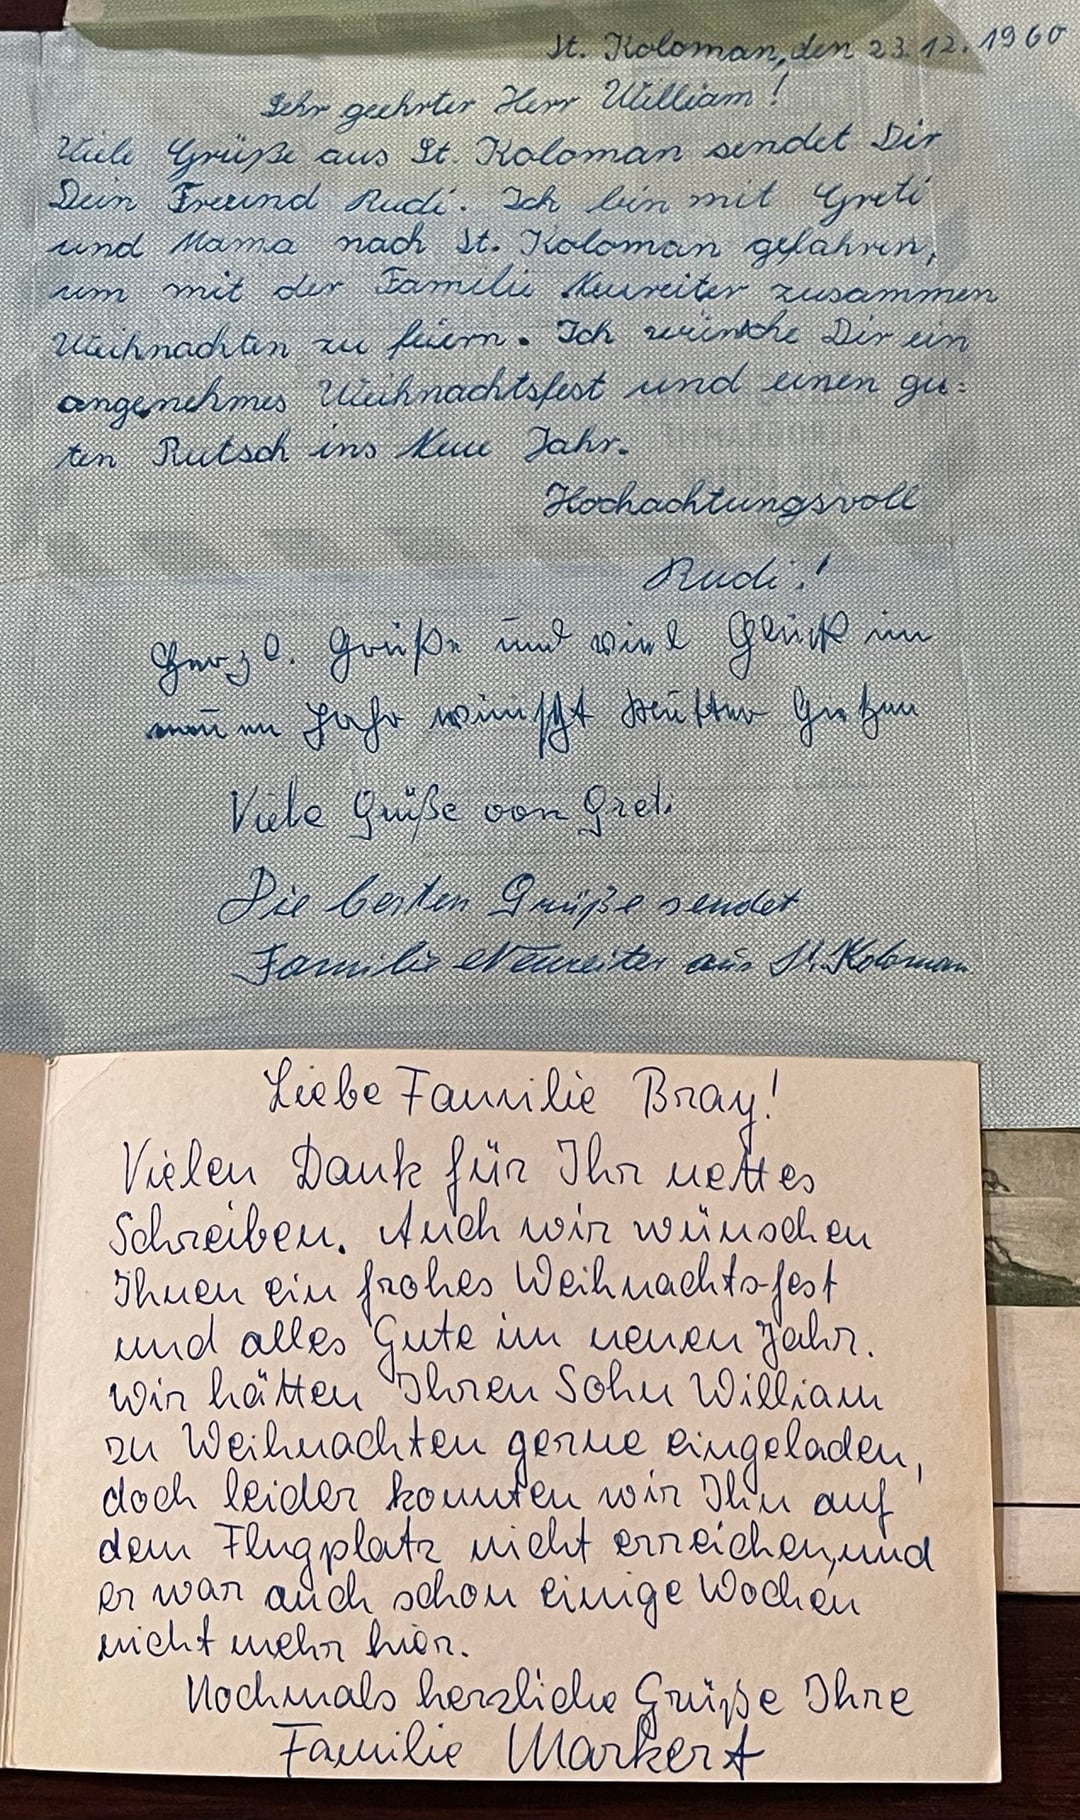 St. Koloman, den 23.12.1960
Sehr geehrter Herr William!
Viele Grüße aus St. Koloman sendet Dir
Dein Freund Rudi. Ich bin mit Greti
und Mama nach St. Koloman gefahren,
um mit der Familie Neureiter zusammen
Weihnachten zu feiern. Ich wünsche Dir ein
angenehmes Weihnachtsfest und einen gu=
ten Rutsch ins Neue Jahr.
Hochachtungsvoll
Rudi!
Herzl. Grüße und viel Glück im
neuen Jahr wünscht Mutter
Viele Grüße von Greti
Die besten Grüße sendet
Familie Neureiter aus St. Koloman
Liebe Familie Bray!
Vielen Dank für Ihr nettes
Schreiben. Auch wir wünschen
Ihnen ein frohes Weihnachtsfest
und alles Gute im neuen Jahr.
Wir hätten Ihren Sohn William
zu Weihnachten gerne eingeladen,
doch leider konnten wir Ihn auf
dem Flugplatz nicht erreichen, und
er war auch schon einige Wochen
nicht mehr hier.
Nochmals herzliche Grüße Ihre
Familie Markert